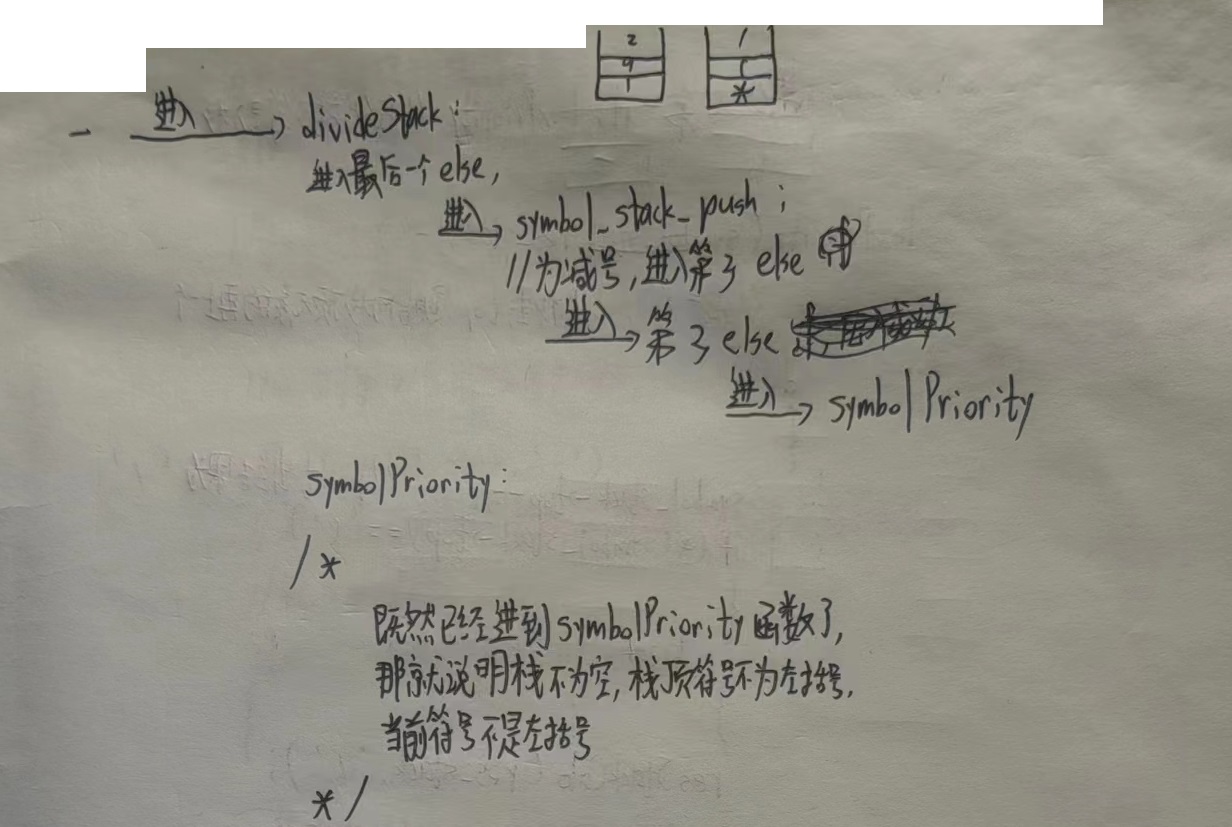 2 /
9 (
1 *
- 进入 divideStack:
进入最后一个else,
进入 symbol_stack_push ;
//为减号,进入第3 else 中
进入 第3 else
进入 symbolPriority
symbolPriority:
/*
既然已经进到symbolPriority函数了,
那就说明栈不为空,栈顶符号不为左括号,
当前符号不是左括号
*/